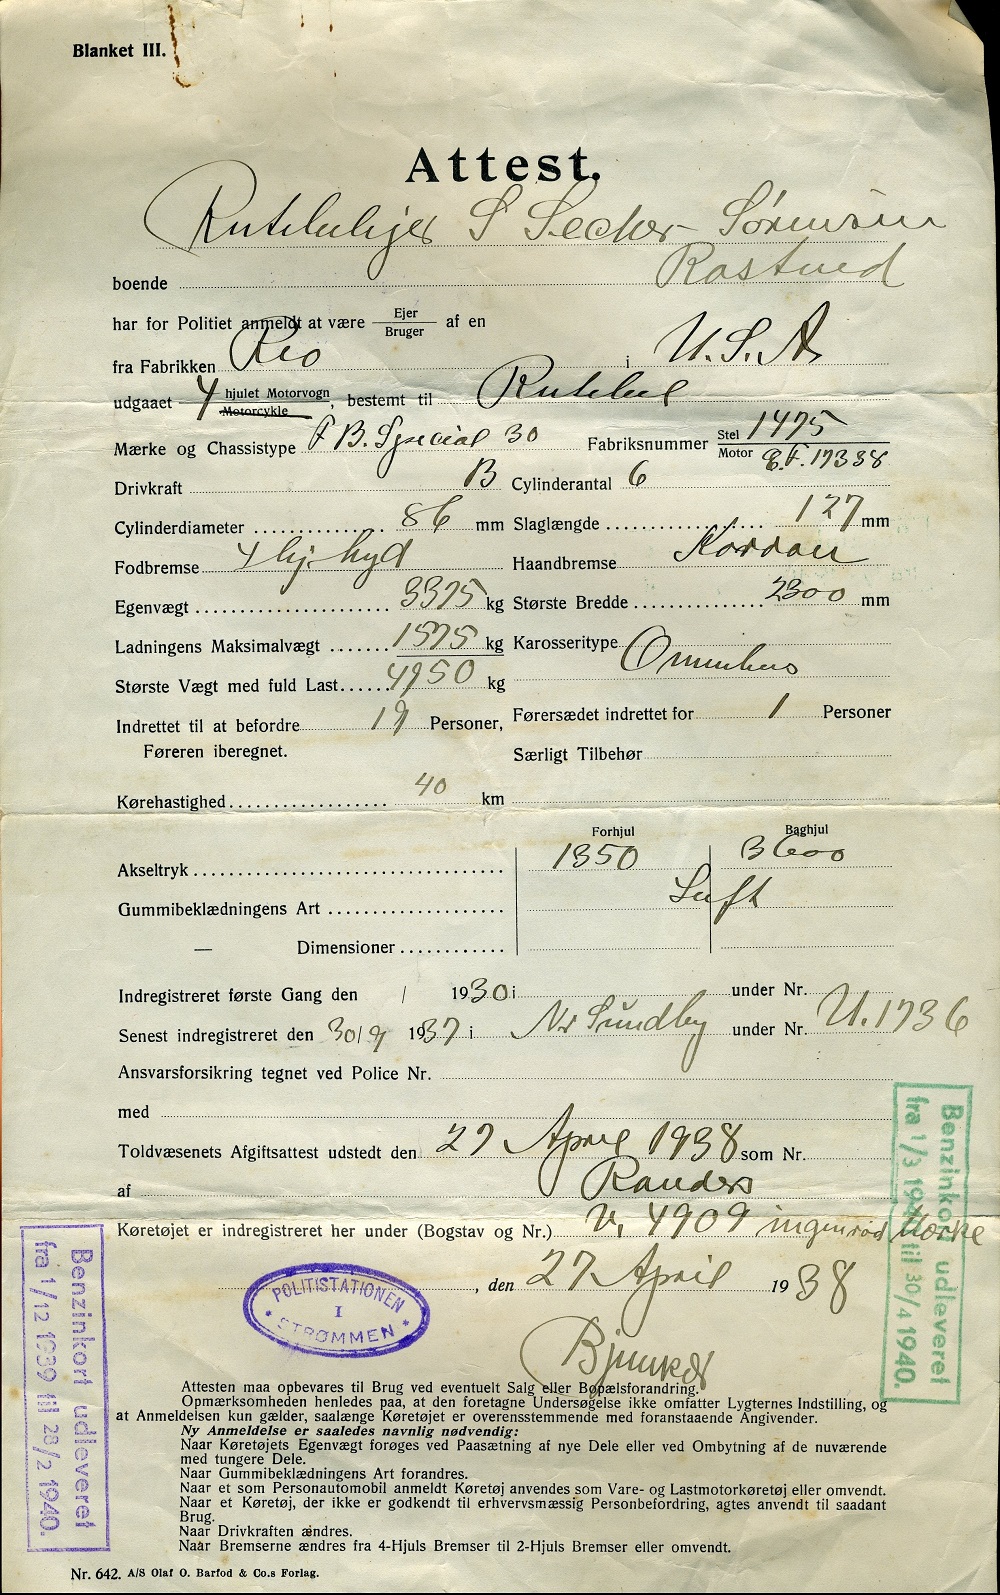 Blanket III.
Attest.
Rutebilejer S Secher Sørensen
boende Rostved
har for Politiet anmeldt at være Ejer / Bruger af en
fra Fabrikken Reo i U.S.A.
udgaaet 4 hjulet Motorvogn / Motorcykle, bestemt til Rutebil
Mærke og Chassistype F B. Special 30 Fabriksnummer Stel 1475
Motor 17338
Drivkraft B Cylinderantal 6
Cylinderdiameter 86 mm Slaglængde 127 mm
Fodbremse 4 hj. hyd Haandbremse Kardan
Egenvægt 3375 kg Største Bredde 2300 mm
Ladningens Maksimalvægt 1575 kg Karosseritype Omnibus
Største Vægt med fuld Last 4950 kg
Indrettet til at befordre 19 Personer, Førersædet indrettet for 1 Personer
Føreren iberegnet. Særligt Tilbehør
Kørehastighed 40 km
Forhjul Baghjul
Akseltryk 1350 3600
Gummibeklædningens Art Luft
— Dimensioner
Indregistreret første Gang den / 1930 i under Nr.
Senest indregistreret den 30/9 1937 i Nr Sundby under Nr. U.1736
Ansvarsforsikring tegnet ved Police Nr.
med
Toldvæsenets Afgiftsattest udstedt den 27 April 1938 som Nr.
af Randers
Køretøjet er indregistreret her under (Bogstav og Nr.) 4909
, den 27 April 1938
POLITISTATIONEN
I
STRØMMEN
Benzinkort udleveret
fra 1/12 1939 til 28/2 1940.
Benzinkort udleveret
fra 1/3 1940 til 30/4 1940.
Attesten maa opbevares til Brug ved eventuelt Salg eller Bopælsforandring.
Opmærksomheden henledes paa, at den foretagne Undersøgelse ikke omfatter Lygternes Indstilling, og
at Anmeldelsen kun gælder, saalænge Køretøjet er overensstemmende med foranstaaende Angivender.
Ny Anmeldelse er saaledes navnlig nødvendig:
Naar Køretøjets Egenvægt forøges ved Paasætning af nye Dele eller ved Ombytning af de nuværende
med tungere Dele.
Naar Gummibeklædningens Art forandres.
Naar et som Personautomobil anmeldt Køretøj anvendes som Vare- og Lastmotorkøretøj eller omvendt.
Naar et Køretøj, der ikke er godkendt til erhvervsmæssig Personbefordring, agtes anvendt til saadant
Brug.
Naar Drivkraften ændres.
Naar Bremserne ændres fra 4-Hjuls Bremser til 2-Hjuls Bremser eller omvendt.
Nr. 642. A/S Olaf O. Barfod & Co.s Forlag.